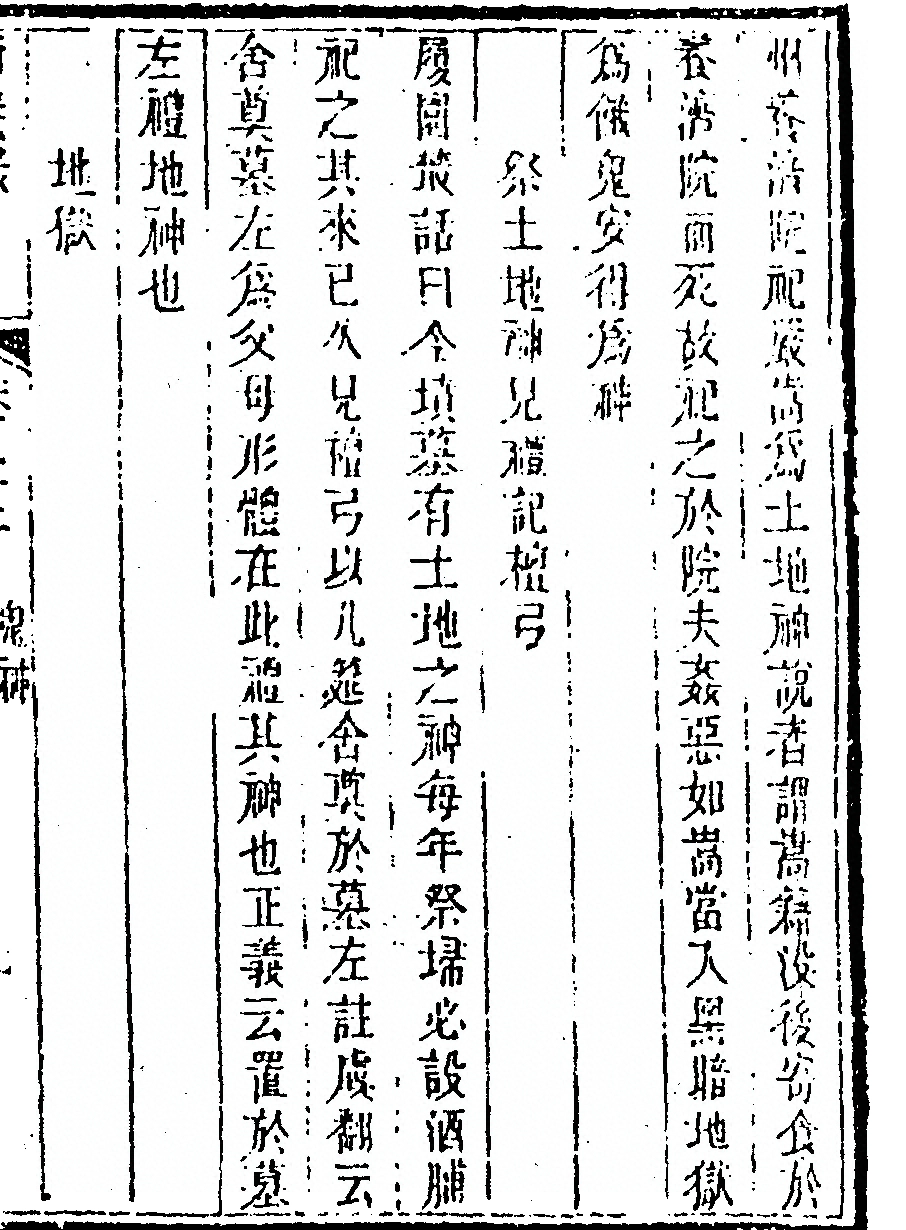 州養濟院祀嚴嵩爲土地神說者謂嵩籍没後寄食於
養濟院而死故祀之於院夫姦惡如嵩當入黑暗地獄
爲餓鬼安得爲神
祭土地神見禮記檀弓
履園叢話曰今墳墓有土地之神每年祭埽必設酒脯
祀之其來已久見檀弓以几筵舍奠於墓左註虞翻云
舍奠墓左爲父母形體在此禮其神也正義云置於墓
左禮地神也
地獄
鬼神